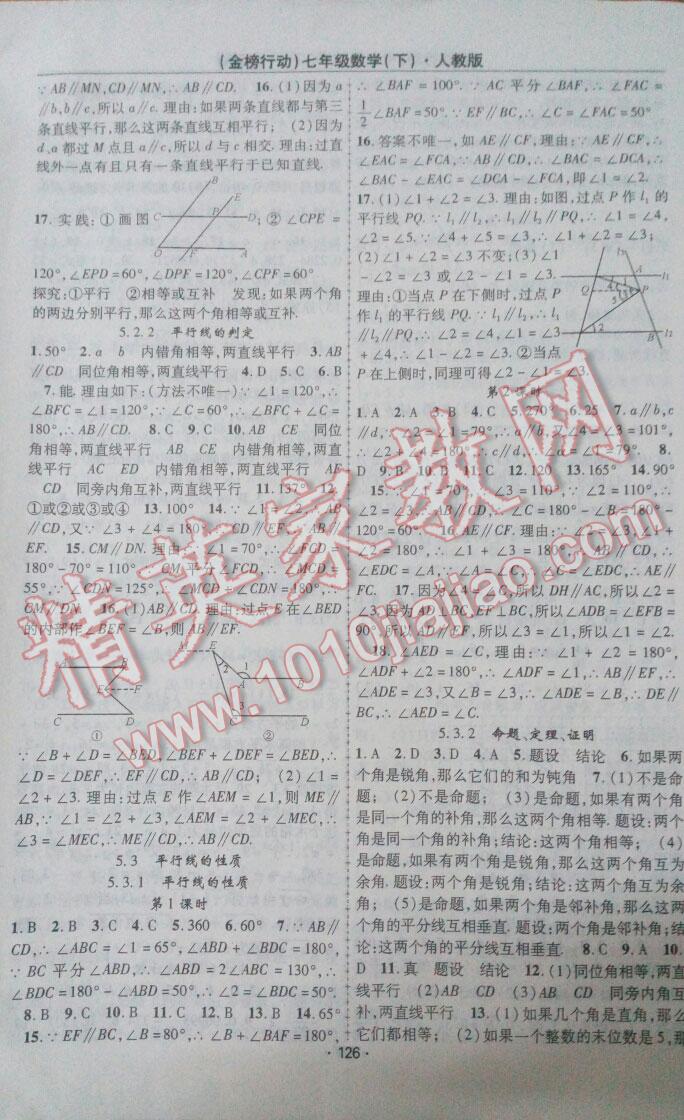 (金榜行动)七年级数学(下)·人教版
∵AB∥MN,CD∥MN,∴AB∥CD. 16.(1)因为a
∥b,b∥c,所以a∥c.理由:如果两条直线都与第三
条直线平行,那么这两条直线互相平行; (2)因为
d、a都过M点且a∥c,所以d与c相交.理由:过直
线外一点有且只有一条直线平行于已知直线.
17.实践:①画图
;②∠CPE=
120°,∠EPD=60°,∠DPF=120°,∠CPF=60°
探究:①平行 ②相等或互补 发现:如果两个角
的两边分别平行,那么这两个角相等或互补.
5.2.2 平行线的判定
1.50° 2.a b 内错角相等,两直线平行 3.AB
∥CD 同位角相等,两直线平行 4.D 5.C 6.B
7.能.理由如下:(方法不唯一)∵∠1=120°,∴
∠BFC=∠1=120°,∵∠C=60°,∴∠BFC+∠C=
180°,∴AB∥CD. 8.C 9.C 10.AB CE 同位
角相等,两直线平行 AB CE 内错角相等,两直
线平行 AC ED 内错角相等,两直线平行
AE CD 同旁内角互补,两直线平行 11.137° 12.
①或②或③或④ 13.100° 14.
∥CD,又∵∠3+∠4=180°,∴CD∥EF,∴AB∥
EF. 15.CM∥DN.理由:∵∠1=70°,∴∠FCD=
180°-∠1=110°,∵CM平分∠DCF,∴∠DCM=
55°,∵∠CDN=125°,∴∠DCM+∠CDN=180°,∴
CM∥DN. 16.(1)AB∥CD.理由:过点E在∠BED
的内部作∠BEF=∠B,则AB∥EF.
① ②
∵∠B+∠D=∠BED,∠BEF+∠DEF=∠BED,∴
∠D=∠DEF,∴EF∥CD,∴AB∥CD; (2)∠1=
∠2+∠3.理由:过点E作∠AEM=∠1,则ME∥
AB,∵∠1=∠2+∠3,∠AEM=∠2+∠MEC,∴
∠3=∠MEC,∴ME∥CD,∴AB∥CD.
5.3 平行线的性质
5.3.1 平行线的性质
第1课时
1.B 2.B 3.C 4.C 5.360 6.60° 7.∵AB∥
CD,∴∠ABC=∠1=65°,∠ABD+∠BDC=180°,
∵BC平分∠ABD,∴∠ABD=2∠ABC=130°,∴
∠BDC=180°-∠ABD=50°,∴∠2=∠BDC=50°.
8.B 9.C 10.B 11.B 12.B 13.C 14.65°
15.∵EF∥BC,∴∠B=80°,∴∠BAF+∠B=180°,
∴∠BAF=100°.∵AC平分∠BAF,∴∠FAC=
1/2∠BAF=50°.∵EF∥BC,∴∠C=∠FAC=50°.
16.答案不唯一,如AE∥CF,理由:∵AE∥CF,∴
∠EAC=∠FCA,∵AB∥CD,∴∠BAC=∠DCA,
∴∠BAC-∠EAC=∠DCA-∠FCA,即∠1=∠2.
17.(1)∠1+∠2=∠3.理由:如图,过点P作l₁的
平行线PQ.∵l₁∥l₂,∴l₁∥l₂∥PQ,∴∠1=∠4,
∠2=∠5.∵∠4+∠5=∠3,∴∠1+∠2=∠3;
(2)∠1+∠2=∠3不变;(3)∠1
-∠2=∠3或∠2-∠1=∠3.
理由:①当点P在下侧时,过点P
作l₁的平行线PQ.∵l₁∥l₂,∴l₁∥
l₂∥PQ,∴∠2=∠4,∠1=∠3+
∠4,∴∠1-∠2=∠3. ②当点
P在上侧时,同理可得∠2-∠1=∠3.
第2课时
1.A 2.A 3.B 4.C 5.270° 6.25 7.∵a∥b,
8.
D 9.B 10.D 11.C 12.120 13.165° 14.90°
∠2=180°,∴∠1+∠3=180°,
FC. 17.因为∠4=∠C,所以DH∥AC,所以∠1=
90°,所以AD∥EF,所以∠3=∠1,所以∠1=∠2.
18.∠AED=∠C.理由:∵∠1+∠2=180°,
∠ADF+∠2=180°,∴∠ADF=∠1,∴AB∥EF,∴
∠3=∠ADE,又∠B=∠3,∴∠ADE=∠B,∴DE∥
BC,∴∠AED=∠C.
5.3.2 命题、定理、证明
1.A 2.D 3.D 4.A 5.题设 结论 6.如果两
个角是锐角,那么它们的和为钝角 7.(1)不是命
题; (2)不是命题; (3)是命题,如果两个角
是同一个角的补角,那么这两个角相等.题设:两个
角是同一个角的补角;结论:这两个角相等; (4)
是命题,如果有两个角互余,那么这两个角互为
余角.题设:两个角是锐角;结论:这两个角互为余
角; (5)是命题,如果有两个角是邻补角,那么这两
个角的平分线互相垂直.题设:两个角是邻补角;结
论:这两个角的平分线互相垂直. 8.C 9.A 10.
D 11.真 题设 结论 12.(1)同位角相等,两直
线平行 (2)AB CD (3)AB CD 同旁内角互补
13.(1)如果几个角是直角,那么
它们都相等; (2)如果一个整数的末位数是5,那
·126·
精英家教网
www.1010jiajiao.com